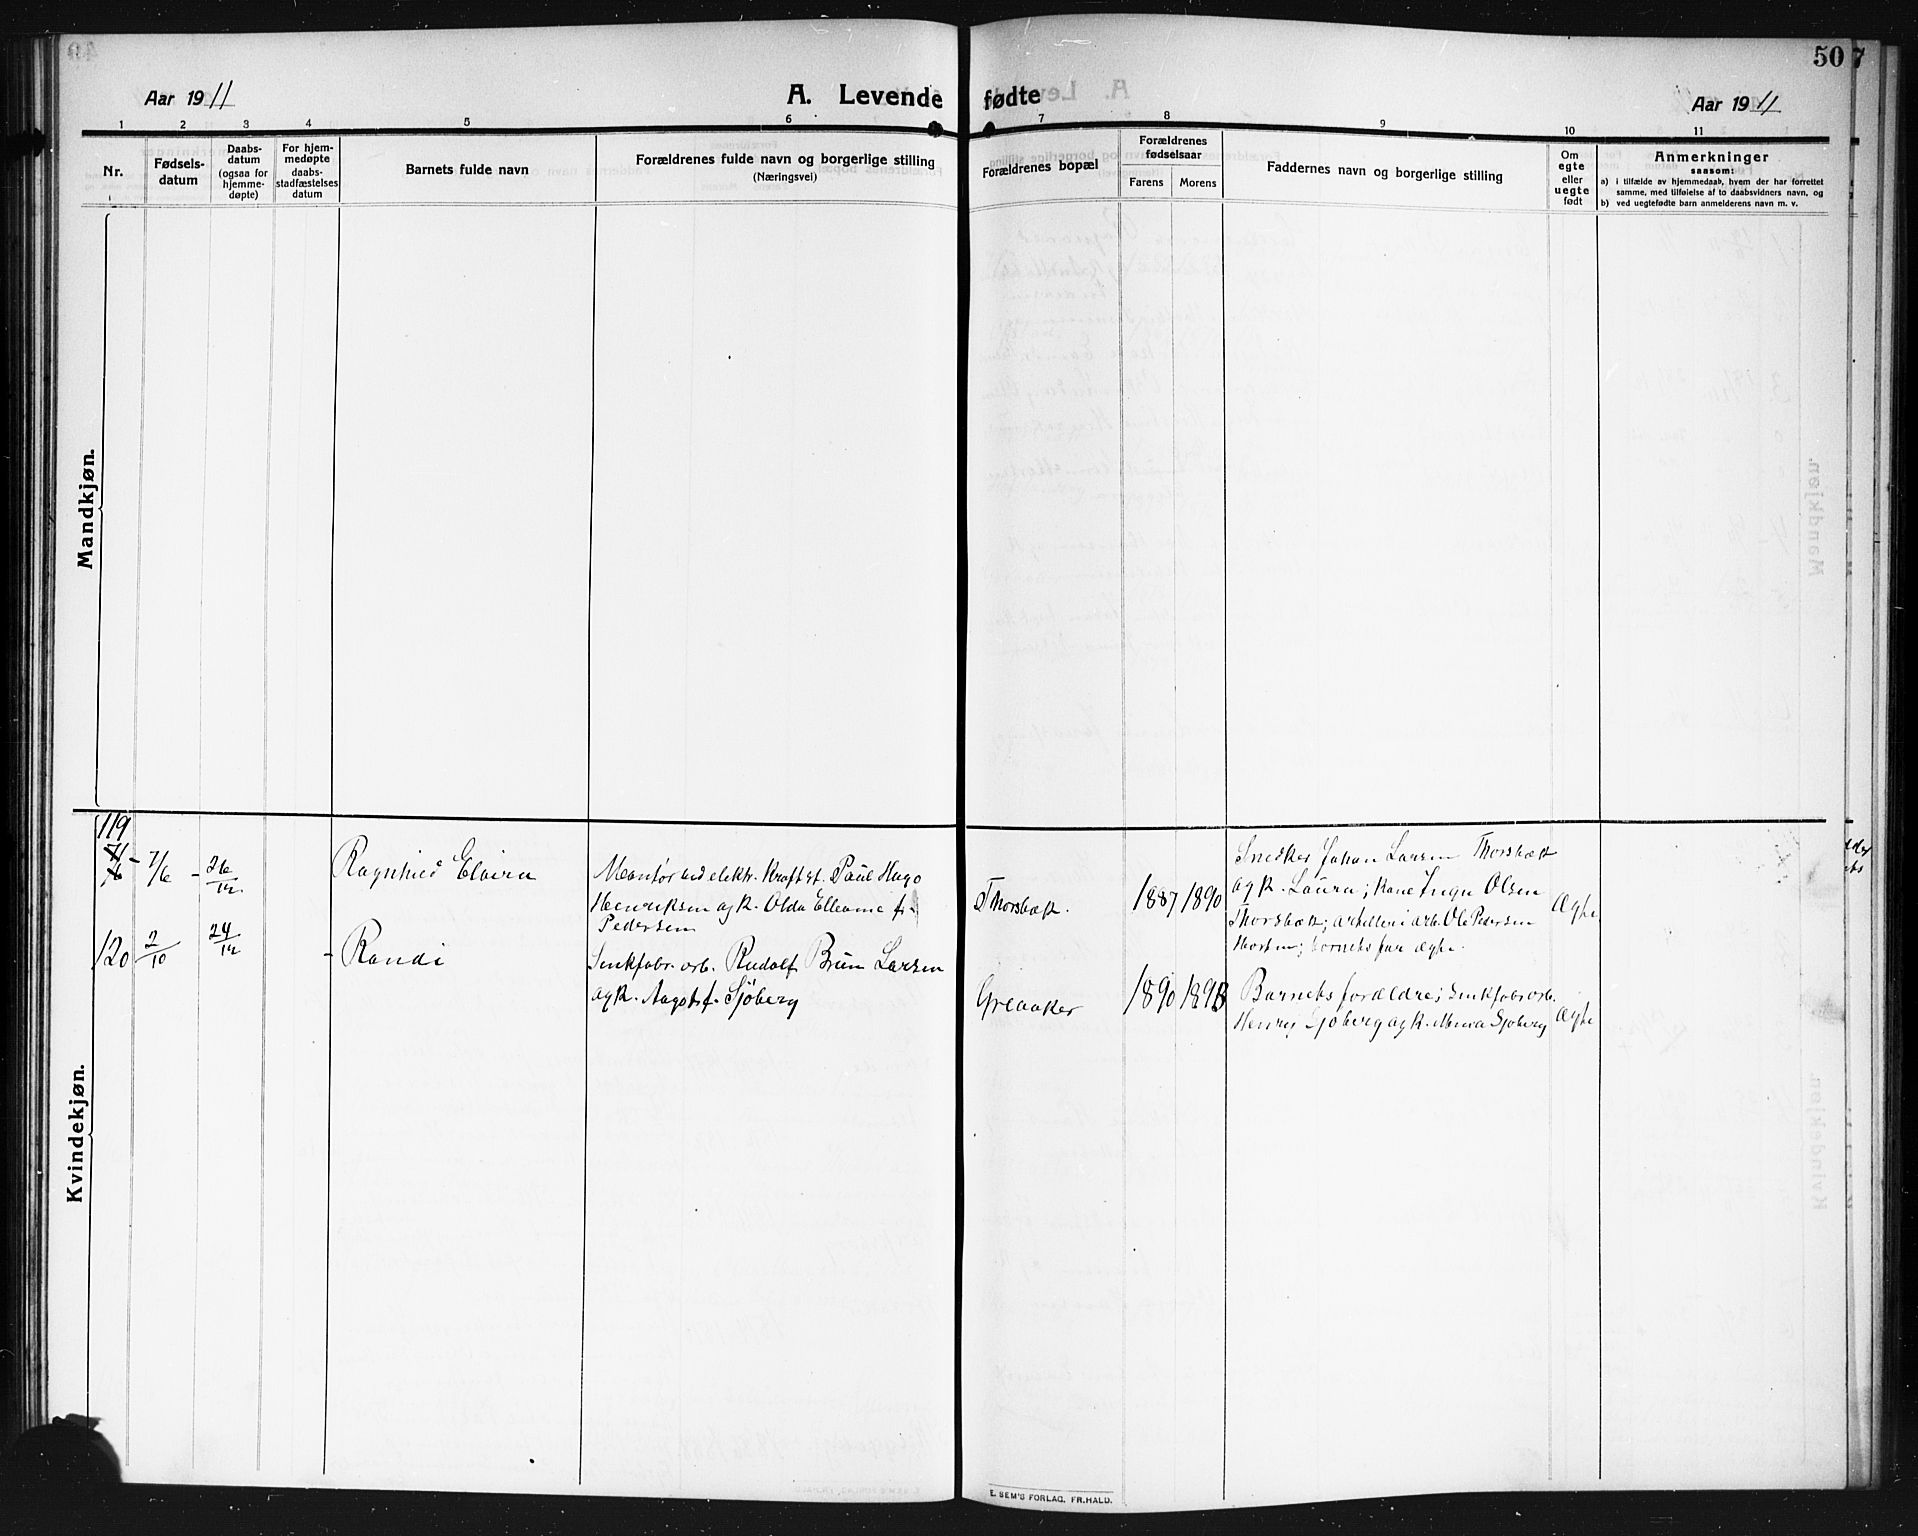 50
7
Aar 1911
A. Levende fødte
Aar 1911
1 2 3 4 5 6 7 8 9 10 11
Nr.
Fødsels-
datum
Daabs-
datum
(ogsaa for
hjemme-
døpte)
For hjem-
medøpte
daabs-
stadfæstelses
datum
Barnets fulde navn
Forældrenes fulde navn og borgerlige stilling
(Næringsvei)
Forældrenes bopæl
Forældrenes
fødselsaar
Farens
Morens
Faddernes navn og borgerlige stilling
Om
egte
eller
uegte
født
Anmerkninger
saasom:
a) i tilfælde av hjemmedaab, hvem der har forrettet
samme, med tilføielse af to daabsvidners navn, og
b) ved uegtefødte barn anmelderens navn m. v.
Mandkjøn.
Kvindekjøn.
119
7/6
26/12
Ragnhild Elvira
Montør ved elektr. Kraftst. Paul Hugo
Henriksen og k. Olda Elleonne f.
Pedersen
Thorsbæk.
1887 1890
Snedker Johan Larsen Thorsbæk
og k. Laura; Kone Inga Olsen
Thorsbæk; artilleriarb. Ole Pedersen
; barnets far ægte.
Ægte
120
2/10
24/12
- Randi
Sinkfabr. arb. Rudolf Brun Larsen
og k. Aagot f. Sjöberg
Greaaker
1890 1893
Barnets forældre; Sinkfabr. arb.
Henry Sjöberg og k. Sjöberg
Ægte
E. SEM'S FORLAG, FR.HALD.